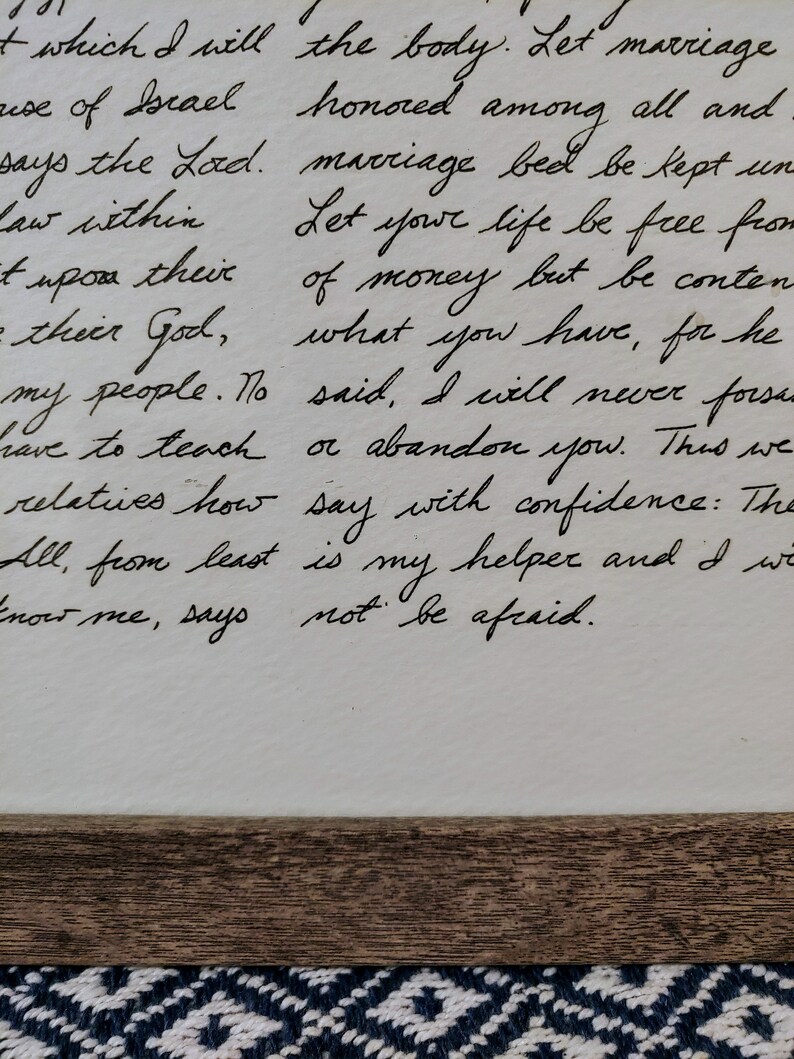 which I will
of Israel
says the Lord.
law within
upon their
their God,
my people. No
have to teach
relatives how
All, from least
know me, says
the body. Let marriage
honored among all and
marriage bed be kept un
Let your life be free from
of money but be conten
what you have, for he
said, I will never forsa
or abandon you. Thus we
say with confidence: The
is my helper and I wi
not be afraid.